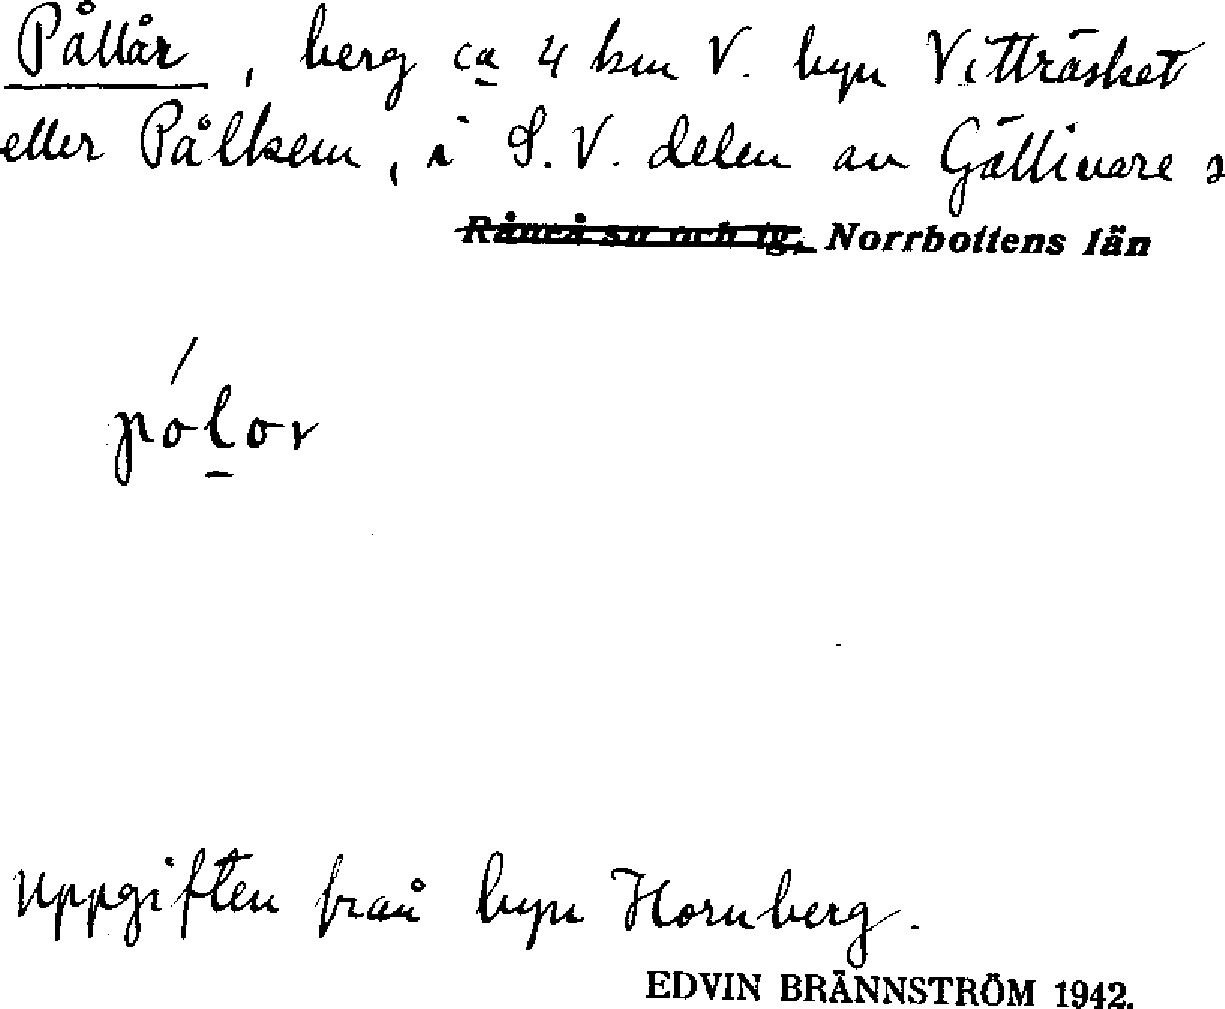 Pållår, berg ca 4 km V. byn Vitträsket
eller Pålkem, i S.V. delen av Gällivare s
Råneå sn och tg, Norrbottens län
pólor
Uppgiften från byn Hornberg.
EDVIN BRÄNNSTRÖM 1942.